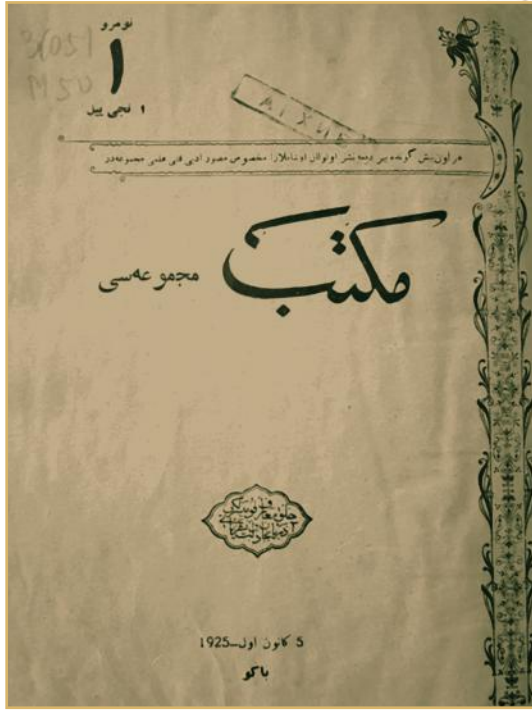 نومرو
۱
۱ نجی ییل
هر اون بش گونده بیر دفعه نشر اولونان اوشاقلارا مخصوص مصور ادبی فنی علمی مجموعه‌در
مکتب
مجموعه‌سی
5 کانون اول_1925
باکو